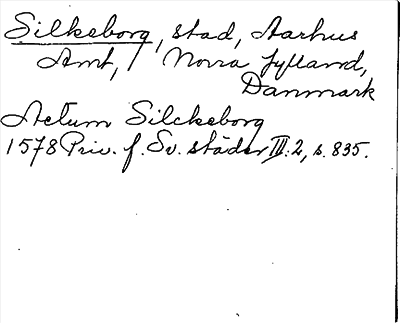 Silkeborg, stad, Aarhus
Amt, Norra Jylland,
Danmark
Actum Silckeborg
1578 Priv. f. Sv. städer III:2, s. 835.